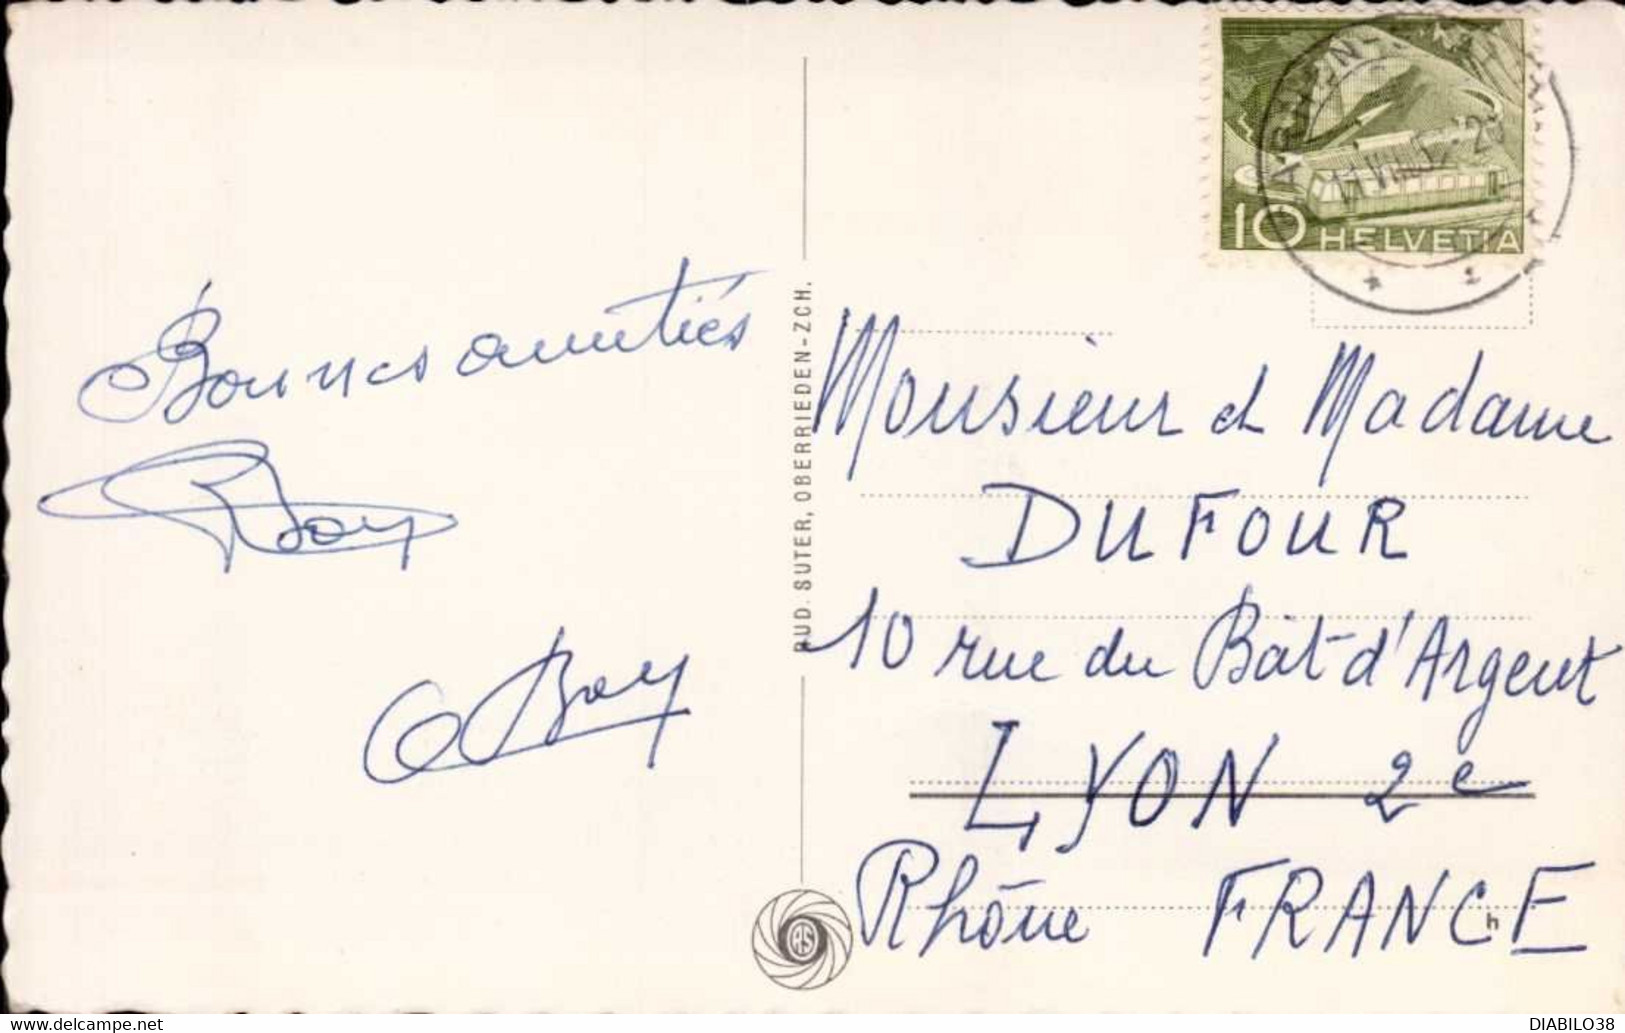 Bonnes amitiés
Boy
Boy
RUD. SUTER, OBERRIEDEN-ZCH.
10 HELVETIA
Monsieur et Madame
DUFOUR
10 rue du Bât-d'Argent
LYON 2e
Rhône FRANCE
h
DIABILO38